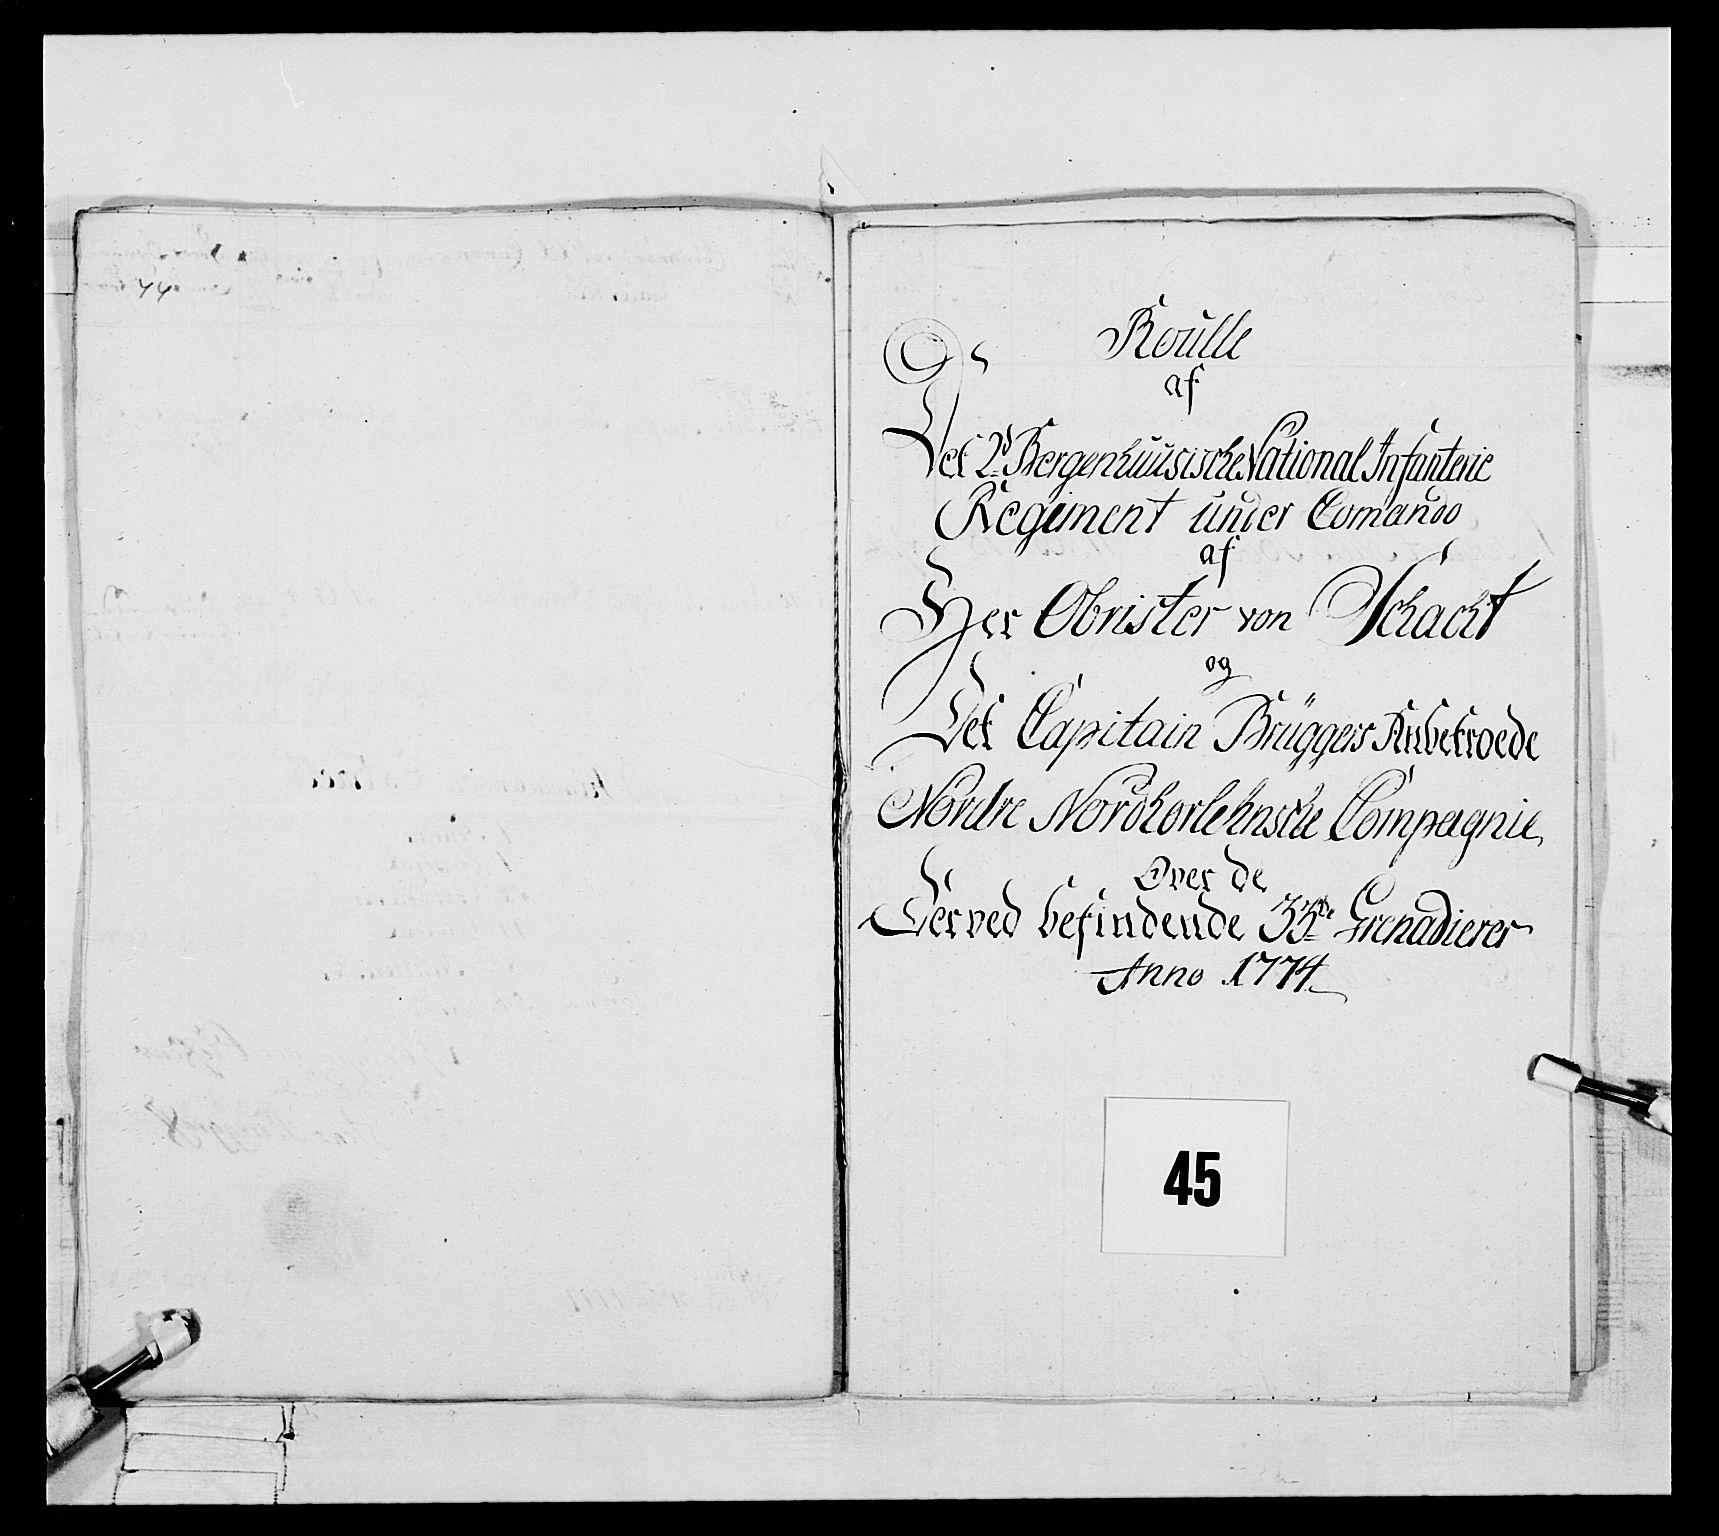 44
Roulle
af
Det 2.d Bergenhuusische National Infanterie
Regiment under Comando
af
Her Obrister von Schacht
og
Det Capitain Brüggers Anbetroede
Nordre Nordhorlehnsche Compagnie
Over de
Derved befindende 33de Grenadierer
Anno 1774
45